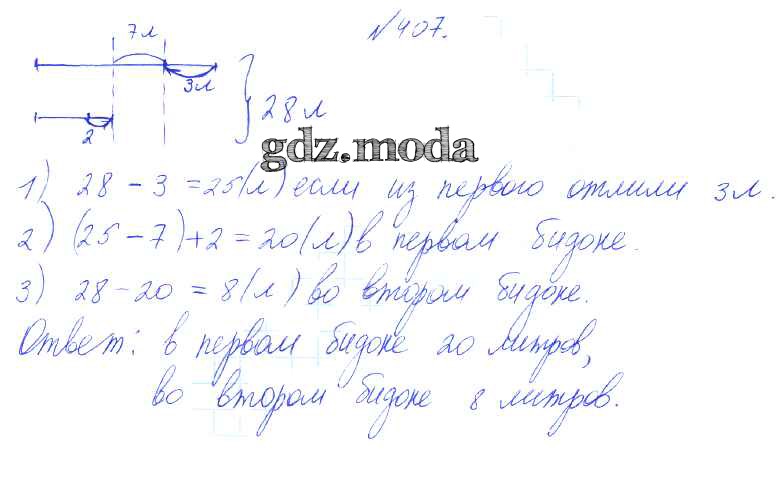 №407.
7л
3л
28л
2
gdz.moda
1) 28 - 3 = 25(л) если из первого отлили 3л.
2) (25 - 7) + 2 = 20(л) в первом бидоне.
3) 28 - 20 = 8(л) во втором бидоне.
Ответ: в первом бидоне 20 литров,
во втором бидоне 8 литров.